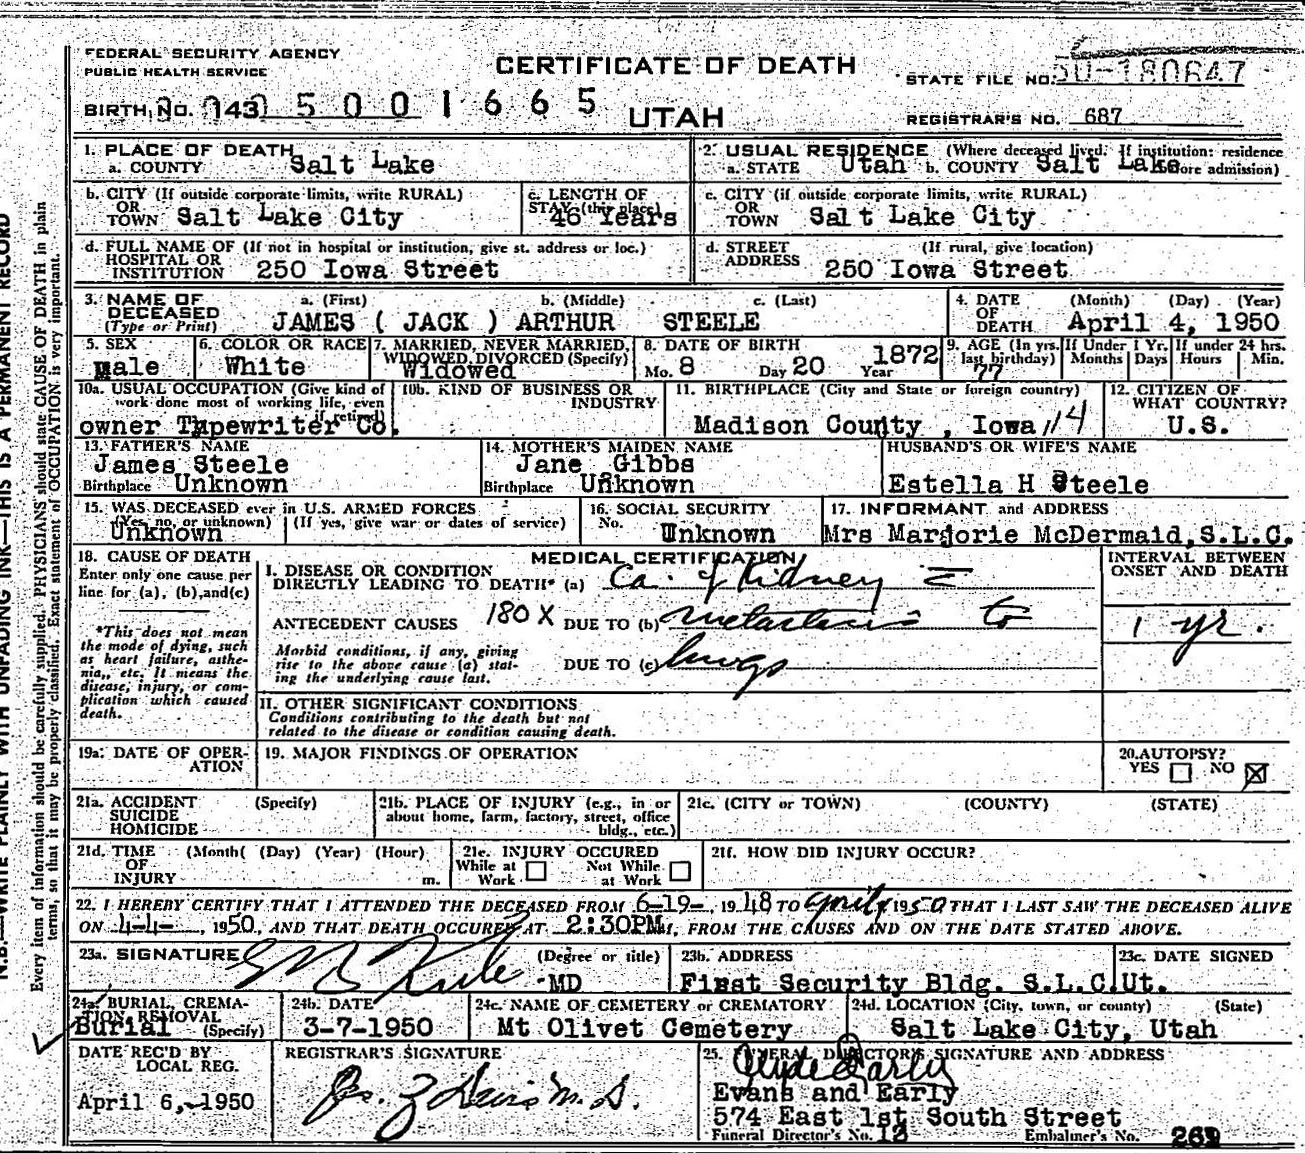 FEDERAL SECURITY AGENCY
PUBLIC HEALTH SERVICE
CERTIFICATE OF DEATH
STATE FILE NO. 50-180647
BIRTH NO. 143 5001665
UTAH
REGISTRAR'S NO. 687
1. PLACE OF DEATH
a. COUNTY Salt Lake
2. USUAL RESIDENCE (Where deceased lived. If institution: residence before admission)
a. STATE Utah b. COUNTY Salt Lake
b. CITY (If outside corporate limits, write RURAL)
OR
TOWN Salt Lake City
c. LENGTH OF
STAY (this place)
46 Years
c. CITY (if outside corporate limits, write RURAL)
OR
TOWN Salt Lake City
d. FULL NAME OF (If not in hospital or institution, give st. address or loc.)
HOSPITAL OR
INSTITUTION 250 Iowa Street
d. STREET (If rural, give location)
ADDRESS 250 Iowa Street
3. NAME OF
DECEASED
(Type or Print)
a. (First) b. (Middle) c. (Last)
JAMES ( JACK ) ARTHUR STEELE
4. DATE (Month) (Day) (Year)
OF
DEATH April 4, 1950
5. SEX
male
6. COLOR OR RACE
White
7. MARRIED, NEVER MARRIED,
WIDOWED, DIVORCED (Specify)
Widowed
8. DATE OF BIRTH
Mo. 8 Day 20 Year 1872
9. AGE (In yrs. last birthday)
77
If Under 1 Yr.
Months Days
If under 24 hrs.
Hours Min.
10a. USUAL OCCUPATION (Give kind of
work done most of working life, even
if retired)
owner Tupewriter Co.
10b. KIND OF BUSINESS OR
INDUSTRY
11. BIRTHPLACE (City and State or foreign country)
Madison County , Iowa 14
12. CITIZEN OF
WHAT COUNTRY?
U.S.
13. FATHER'S NAME
James Steele
Birthplace Unknown
14. MOTHER'S MAIDEN NAME
Jane Gibbs
Birthplace Unknown
HUSBAND'S OR WIFE'S NAME
Estella H Steele
15. WAS DECEASED ever in U.S. ARMED FORCES
(Yes, no, or unknown) (If yes, give war or dates of service)
Unknown
16. SOCIAL SECURITY
No. Unknown
17. INFORMANT and ADDRESS
Mrs Marjorie McDermaid, S.L.C.
18. CAUSE OF DEATH
Enter only one cause per
line for (a), (b), and(c)
*This does not mean
the mode of dying, such
as heart failure, asthe-
nia, etc. It means the
disease, injury, or com-
plication which caused
death.
MEDICAL CERTIFICATION
INTERVAL BETWEEN
ONSET AND DEATH
I. DISEASE OR CONDITION
DIRECTLY LEADING TO DEATH* (a) Ca. of Kidney =
ANTECEDENT CAUSES 180X DUE TO (b) metastasis to
1 yr.
Morbid conditions, if any, giving
rise to the above cause (a) stat-
ing the underlying cause last.
DUE TO (c) lungs
II. OTHER SIGNIFICANT CONDITIONS
Conditions contributing to the death but not
related to the disease or condition causing death.
19a. DATE OF OPER-
ATION
19. MAJOR FINDINGS OF OPERATION
20. AUTOPSY?
YES ☐ NO ☒
21a. ACCIDENT (Specify)
SUICIDE
HOMICIDE
21b. PLACE OF INJURY (e.g., in or
about home, farm, factory, street, office
bldg., etc.)
21c. (CITY or TOWN) (COUNTY) (STATE)
21d. TIME (Month( (Day) (Year) (Hour)
OF
INJURY m.
21e. INJURY OCCURED
While at Work ☐ Not While at Work ☐
21f. HOW DID INJURY OCCUR?
22. I HEREBY CERTIFY THAT I ATTENDED THE DECEASED FROM 6-19-, 1948 TO April 4 1950 THAT I LAST SAW THE DECEASED ALIVE
ON 4-4-, 1950, AND THAT DEATH OCCURED AT 2:30PM, FROM THE CAUSES AND ON THE DATE STATED ABOVE.
23a. SIGNATURE (Degree or title)
MD
23b. ADDRESS
First Security Bldg. S.L.C.Ut.
23c. DATE SIGNED
24a. BURIAL, CREMA-
TION, REMOVAL
Burial (Specify)
24b. DATE
3-7-1950
24c. NAME OF CEMETERY or CREMATORY
Mt Olivet Cemetery
24d. LOCATION (City, town, or county) (State)
Salt Lake City, Utah
DATE REC'D BY
LOCAL REG.
April 6, 1950
REGISTRAR'S SIGNATURE
25. FUNERAL DIRECTOR'S SIGNATURE AND ADDRESS
Clyde Early
Evans and Early
574 East 1st South Street
Funeral Director's No. 18 Embalmer's No. 269
N.B.—WRITE PLAINLY WITH UNFADING INK—THIS IS A PERMANENT RECORD
Every item of information should be carefully supplied. PHYSICIANS should state CAUSE OF DEATH in plain
terms, so that it may be properly classified. Exact statement of OCCUPATION is very important.